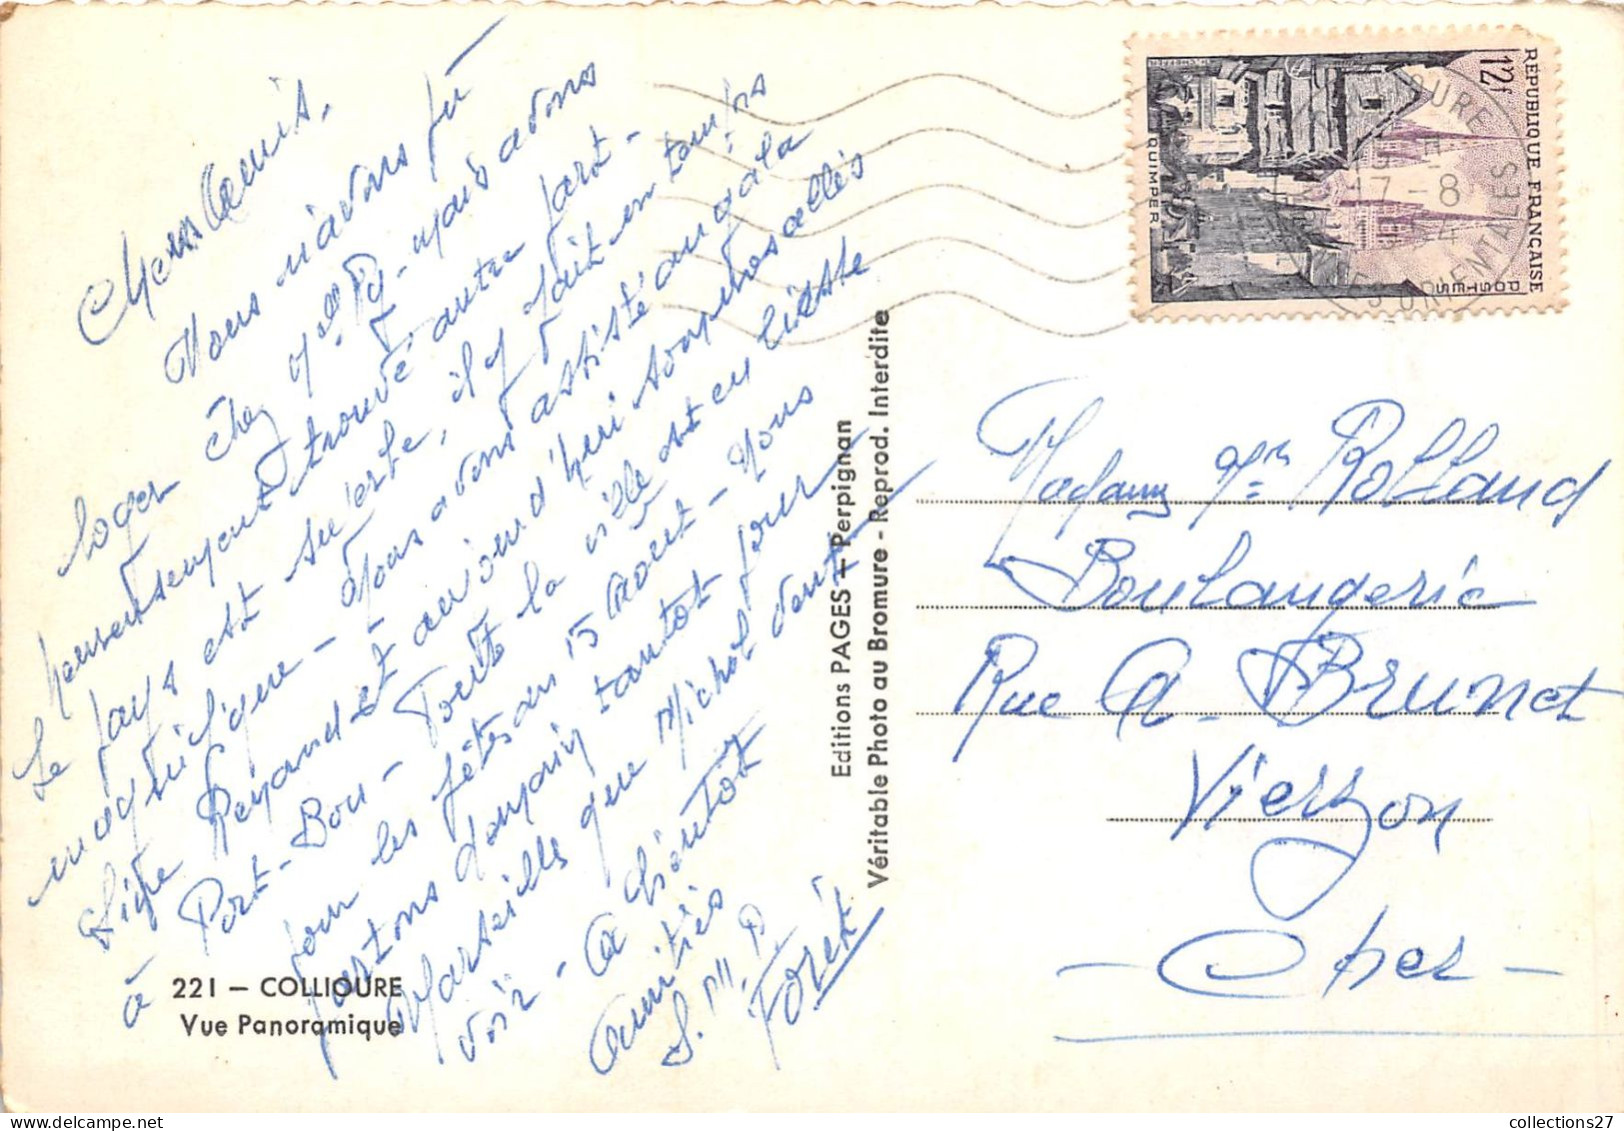 Chers Amis,
Nous n'avons pû
loger chez Melle Py - mais avons
heureusement trouvé autre part -
Le pays est superbe, il y fait un temps
magnifique - Nous avons assisté au gala
Line Renaud et aujourd'hui sommes allés
à Port-Bou - Toute la ville est en liesse
pour les fêtes du 15 Aout - Nous
partons demain tantot pour
Marseille que Michel veut
voir - A bientot
Amitiés
S. M. P.
221 - COLLIOURE
Vue Panoramique
Editions PAGES - Perpignan
Véritable Photo au Bromure - Reprod. Interdite
REPUBLIQUE FRANÇAISE
12f
POSTES
QUIMPER
17-8
ORIENTALES
Madame Mr Rolland
Boulangerie
Rue A. Brunet
Vierzon
- Cher -
collections27